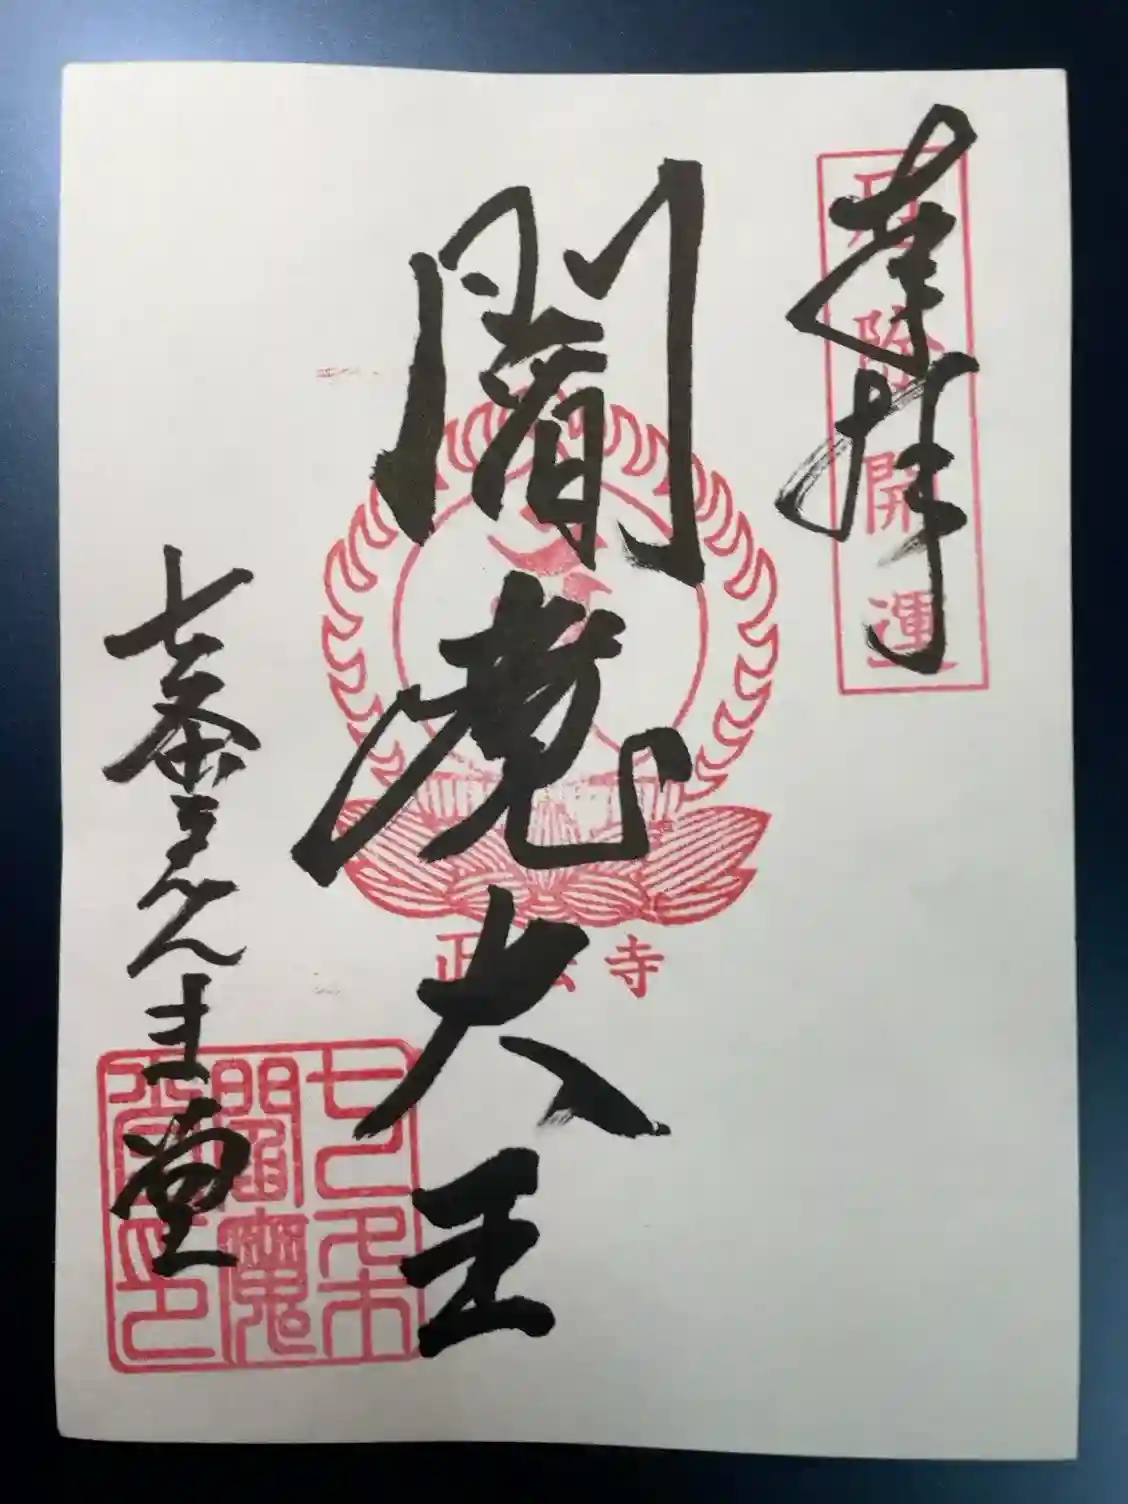 奉拝
厄除開運
閻魔大王
正法寺
七条ゑんま堂
七条
閻魔
堂印